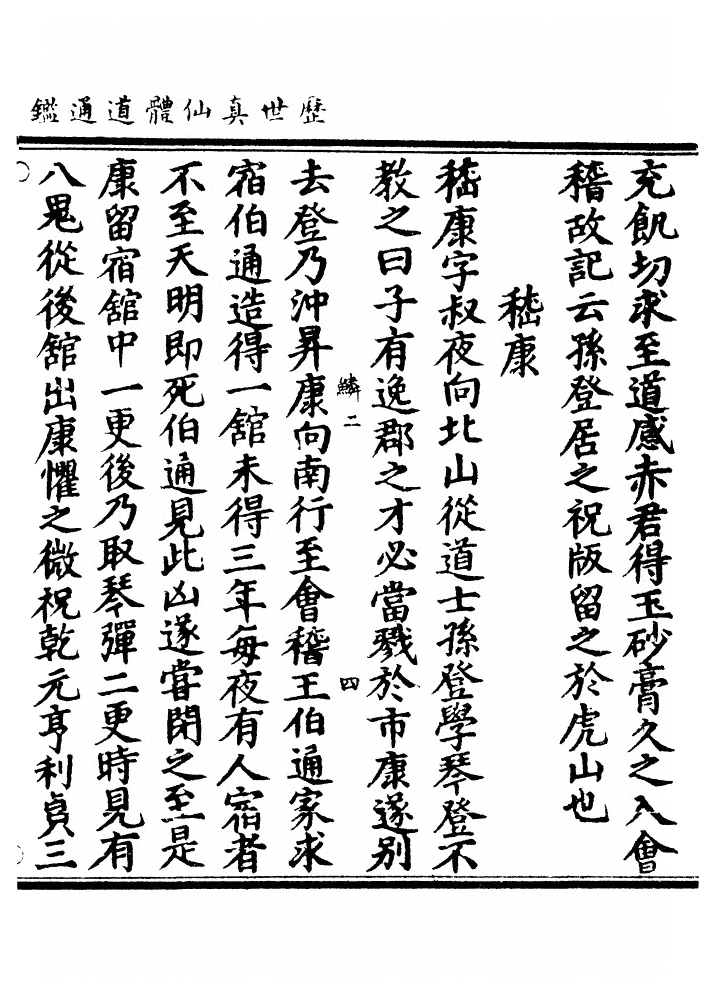 歷世真仙體道通鑑
充飢切求至道感赤君得玉砂膏久之入會
稽故記云孫登居之祝版留之於虎山也
嵇康
嵇康字叔夜向北山從道士孫登學琴登不
教之曰子有逸郡之才必當戮於市康遂别
去登乃沖昇康向南行至會稽王伯通家求
鱗二
四
宿伯通造得一舘未得三年每夜有人宿者
不至天明即死伯通見此凶遂嘗閉之至是
康留宿舘中一更後乃取琴彈二更時見有
八鬼從後舘出康懼之微祝乾元亨利貞三